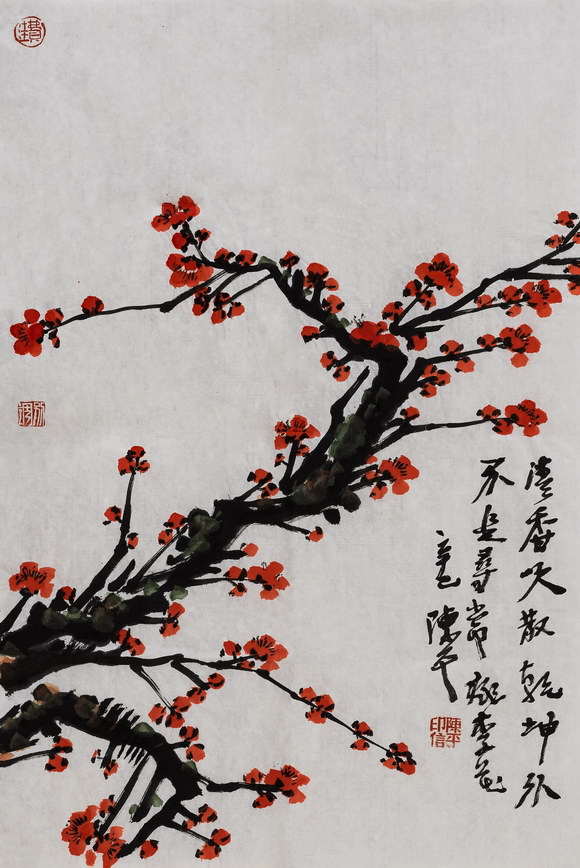 清香吹散乾坤外
不是尋常桃李花
辛巳 陳平
陳平印信